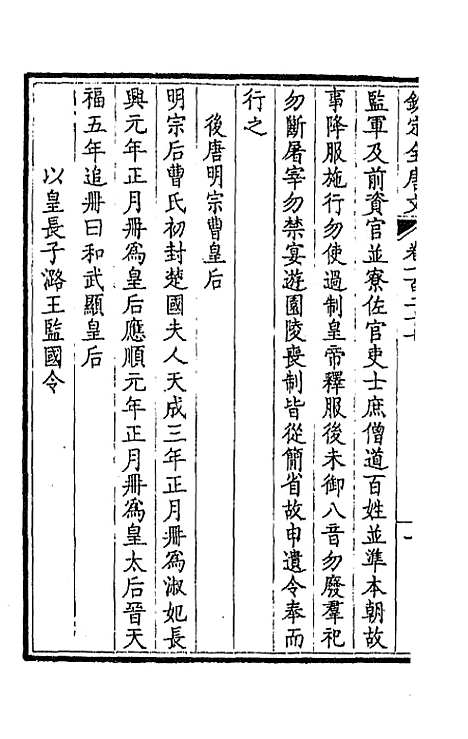 欽定全唐文 卷一百二十七
監軍及前資官並寮佐官吏士庶僧道百姓並準本朝故
事降服施行勿使過制皇帝釋服後未御八音勿廢羣祀
勿斷屠宰勿禁宴遊園陵喪制皆從簡省故申遺令奉而
行之
後唐明宗曹皇后
明宗后曹氏初封楚國夫人天成三年正月冊為淑妃長
興元年正月冊為皇后應順元年正月冊為皇太后晉天
福五年追冊曰和武顯皇后
以皇長子潞王監國令